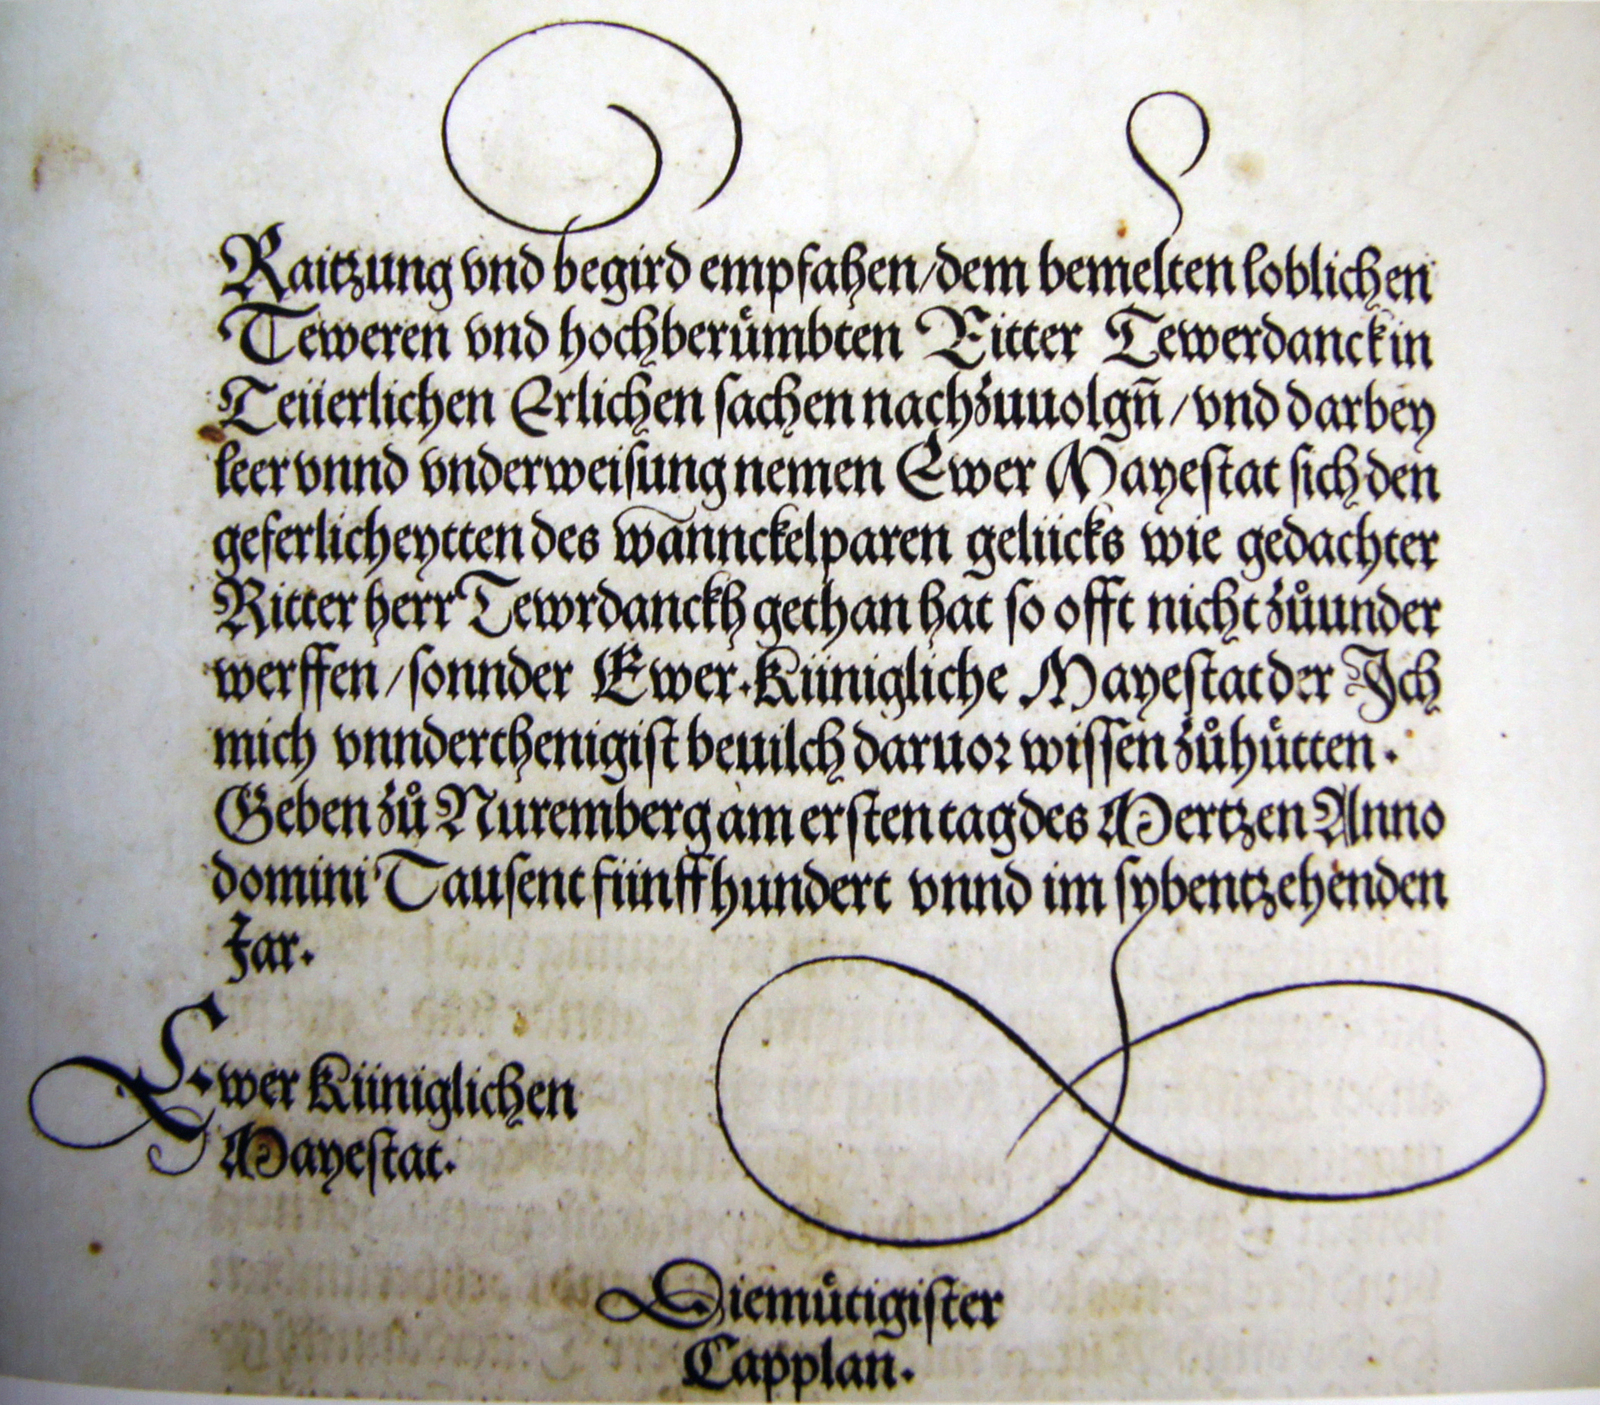 Raitzung vnd begird empfahen/dem bemelten loblichen
Teweren vnd hochberuͤmbten Ritter Tewerdanck in
Teüerlichen Erlichen sachen nachzuuolgñ/vnd darbey
leer vnnd vnderweisung nemen Ewer Mayestat sich den
geferlicheytten des wānnckelparen gelücks wie gedachter
Ritter herr Tewrdanckh gethan hat so offt nicht zůunder
werffen/sonnder Ewer.Künigliche Mayestat der Ich
mich vnnderthenigist beuilch daruor wissen zůhuͤtten.
Geben zů Nuremberg am ersten tag des Mertzen Anno
domini Tausent fünffhundert vnnd im sybentzehenden
Jar.
Ewer Küniglichen
Mayestat.
Diemuͤtigister
Capplan.